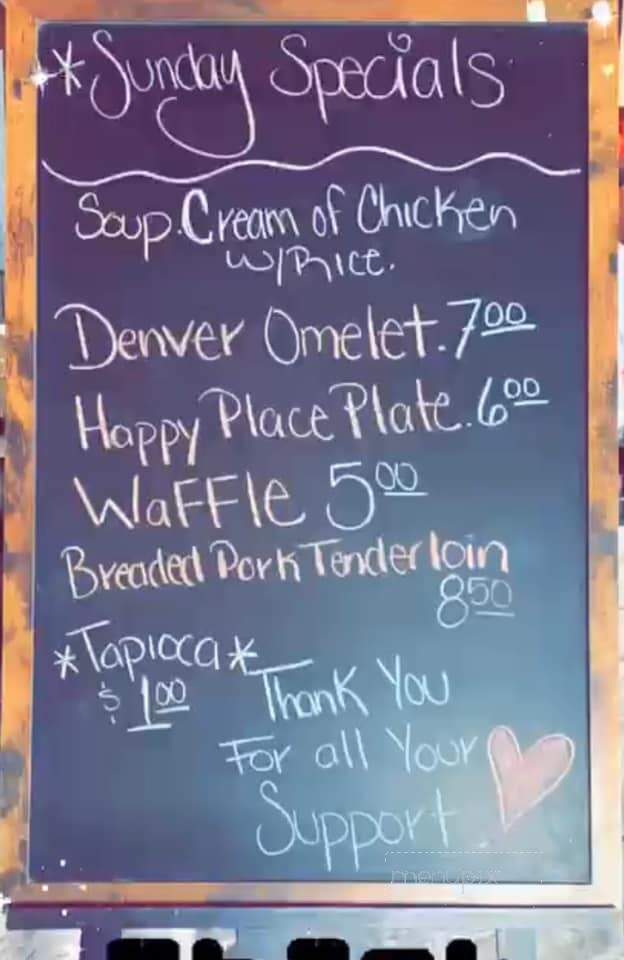 *Sunday Specials
Soup. Cream of Chicken
w/Rice.
Denver Omelet. 7.00
Happy Place Plate. 6.00
Waffle 5.00
Breaded Pork Tenderloin
8.50
*Tapioca*
$1.00
Thank You
For all Your
Support
menupix